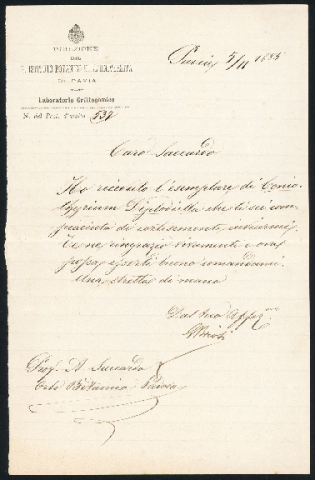 DIREZIONE
DEL
R. ISTITUTO BOTANICO
DI PAVIA
Laboratorio Crittogamico
N. del Prot. 532
Pavia, 5/11 1885
Caro Saccardo
Ho ricevuto l'esemplare di Conio-
thyrium Diplodiella che ti sei com-
piaciuto di cortesemente inviarmi.
Te ne ringrazio vivamente e ove
possa esserti buono comandami.
Una stretta di mano
Dal tuo Affez
Prof. A Saccardo
Orto Botanico Padova